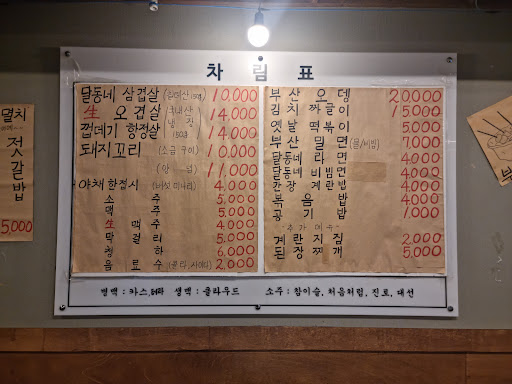 차림표
달동네 삼겹살 (국내산 150g) 10,000
生 오겹살 (국내산 14,000
껍데기 항정살 150g 14,000
돼지꼬리 (소금구이) 10,000
(양념) 11,000
야채한접시 (버섯 미나리) 4,000
소주 5,000
맥주 5,000
生 맥주 4,000
막걸리 5,000
청하 6,000
음료수 (콜라,사이다) 2,000
부산 오뎅 20000
김치 짜글이 15000
옛날 떡볶이 5000
부산 밀면 (물/비빔) 7000
달동네 라면 4000
달동네 비빔면 4000
간장 계란밥 4000
볶음밥 4000
공기밥 1,000
-추가메뉴-
계란지짐 2,000
된장찌개 5,000
병맥 : 카스, 테라 생맥 : 클라우드 소주 : 참이슬, 처음처럼, 진로, 대선
멸치
젓갈밥
5000